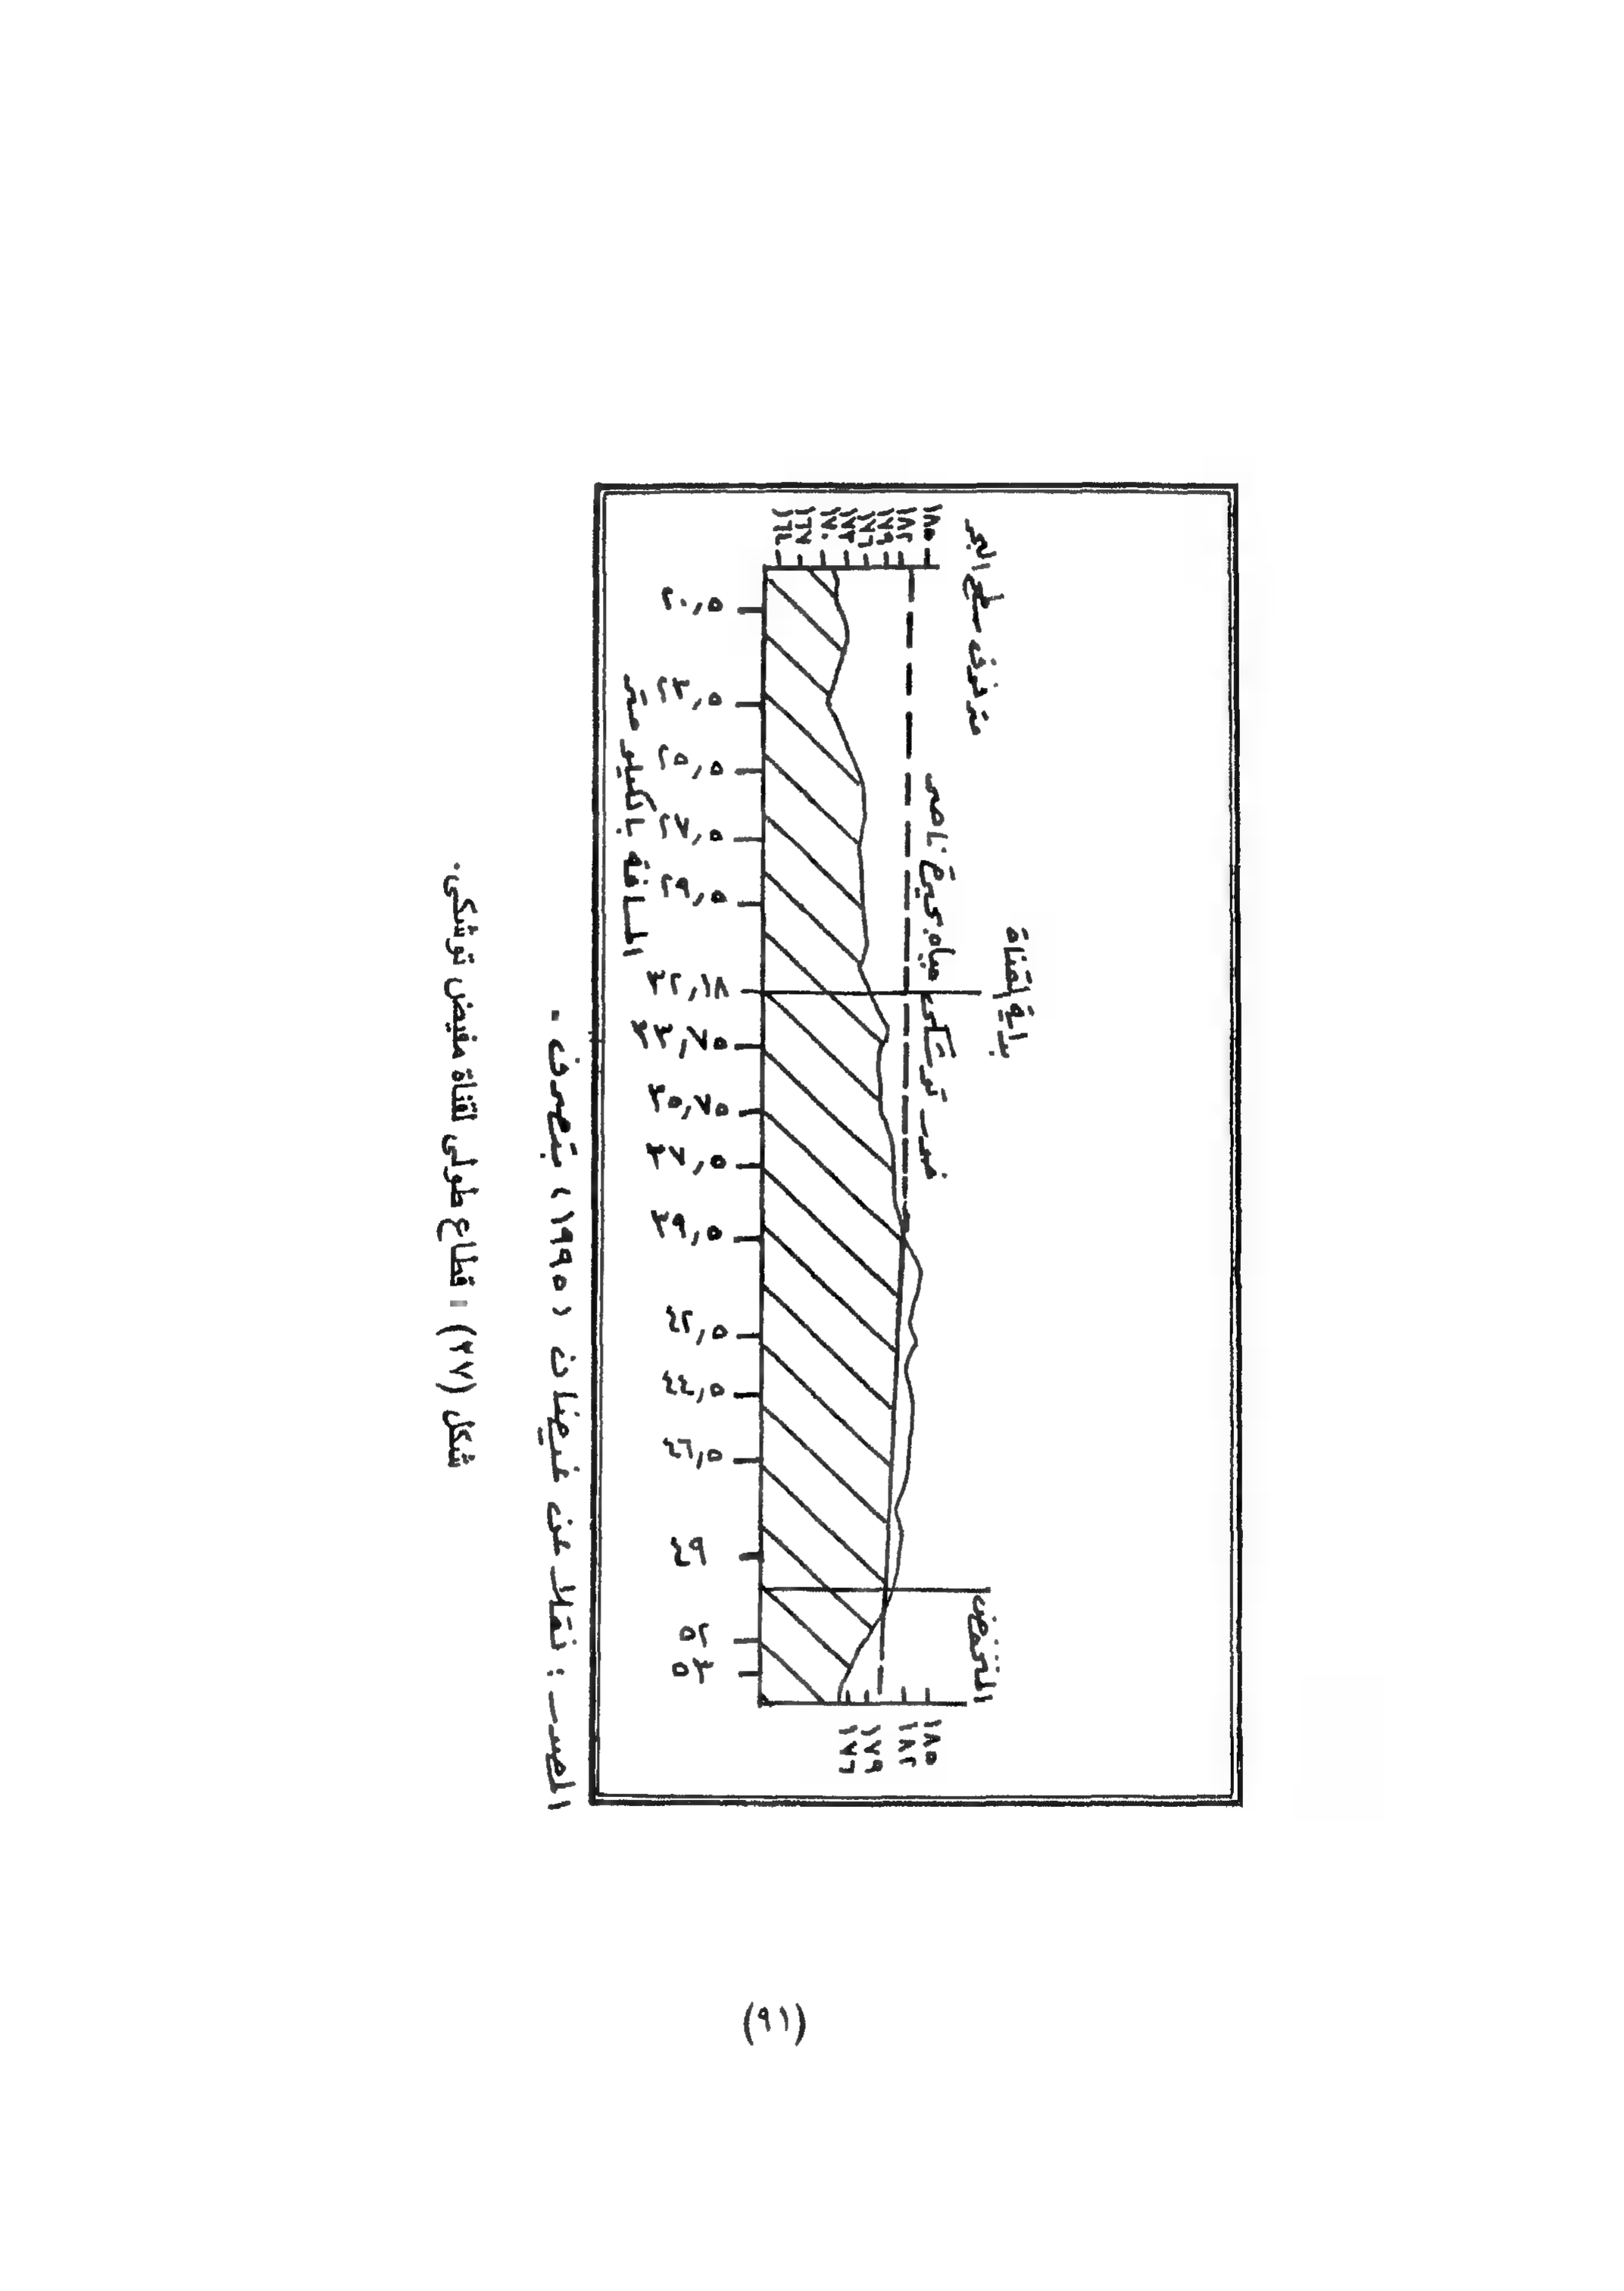 متر فوق سطح البحر
١٨٥
١٨٢
١٧٩
١٧٦
١٧٣
١٧٠
١٦٧
١٦٤
بداية القناة
مياه بحيرة ناصر
خور توشكى
المنخفض
١٨٥
١٨٢
١٧٩
١٧٦
٢٠,٥
٢٣,٥
٢٥,٥
٢٧,٥
٢٩,٥
٣٢,١٨
٣٣,٧٥
٣٥,٧٥
٣٧,٥
٣٩,٥
٤٢,٥
٤٤,٥
٤٦,٥
٤٩
٥٢
٥٣
المسافة بالكيلو متر
المصدر : نقلا عن غيضان (١٩٩٥) بتصرف .
شكل (٢٧) : قطاع طولى لقناة مفيض توشكى.
(٩١)